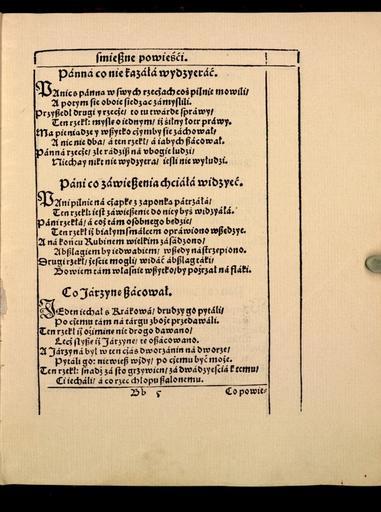 śmießne powieśći.
Pánna co nie kazáłá wydzyeráć.
PAnic o pánná w swych rzeczách coś pilnie mowili/
A potym sie oboie siedząc zámyślili.
Przyßedł drugi y rzecze/ to tu twárde spráwy/
Ten rzekł: myślę o iednym/ iż śilny łotr práwy.
Ma pieniądze y wßytko czymby sie záchował/
A nic nie dba/ á ten rzekł/ á iábych ßácował.
Pánná rzecze/ źle rádzisz ná vbogie ludzi/
Niechay nikt nic wydzyera/ iesli nie wyłudzi.
Páni co záwießenia chciáłá widzyeć.
PAni pilnie ná czapkę z zaponką pátrzáłá/
Ten rzekł: iest záwießenie do niey byś widzyáłá.
Páni rzekłá/ á coż tám osobnego będzie/
Ten rzekł iż białym smálcem oprawiono wßędzye.
A ná końcu Rubinem wielkim zásádzono/
Abßlagiem by iedwabiem/ wßędy nástrzepiono.
Drugi rzekł/ ieście mogli/ widáć ábßlag táki/
Bowiem tám właśnie wßytko/ by poźrzał ná fláki.
Co Járzyne ßácował.
JEden iechał s Krákowá/ drudzy go pytáli/
Po czemu tám ná tárgu zboże przedawáli.
Ten rzekł iż oźimine nie drogo dawano/
Lecż słyßę iż Járzynę/ te oßácowano.
A Járzyná był w ten czás dworzánin ná dworze/
Pytáli go: nie wieß wżdy/ po czemu być może.
Ten rzekł: snadź zá sto grzywien/ zá dwádzyeściá k temu/
Ci iecháli/ á co rzec chłopu ßalonemu.
Bb 5
Co powie/